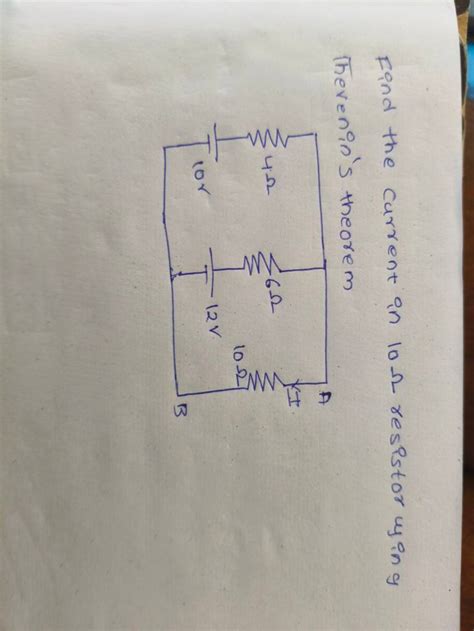 Find the current in 10Ω resistor using
Thevenin's theorem
A
I
4Ω
6Ω
10Ω
10V
12V
B